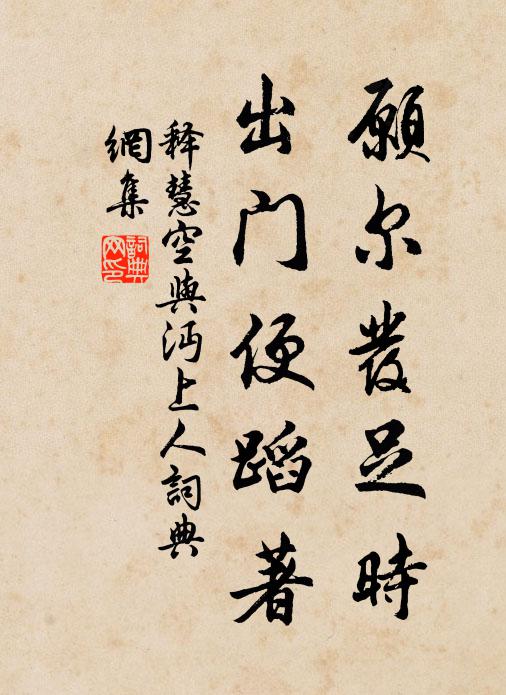 願尔發足時
出门便蹈著
释慧空與沔上人詞典
網集
詞典
网印